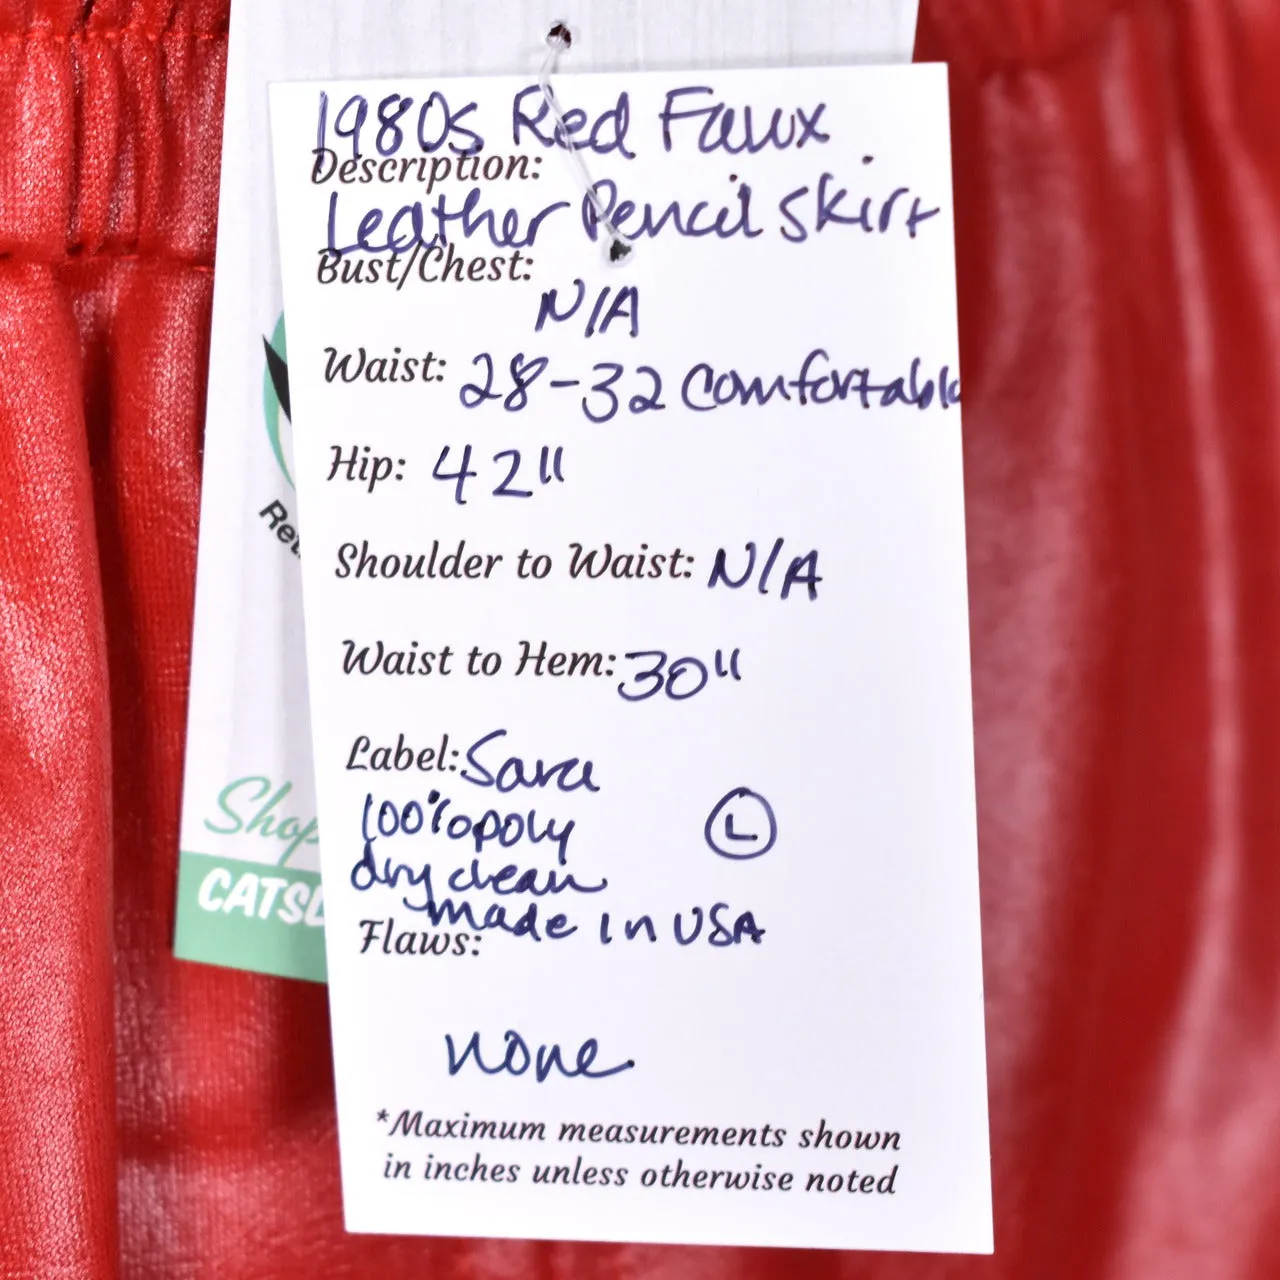 1980s Red Faux
Description:
Leather Pencil Skirt
Bust/Chest:
N/A
Waist: 28-32 comfortable
Hip: 42"
Shoulder to Waist: N/A
Waist to Hem: 30"
Label: Sara
100% poly L
dry clean
made in USA
Flaws:
none
*Maximum measurements shown
in inches unless otherwise noted
Ret
Shop
CATSL